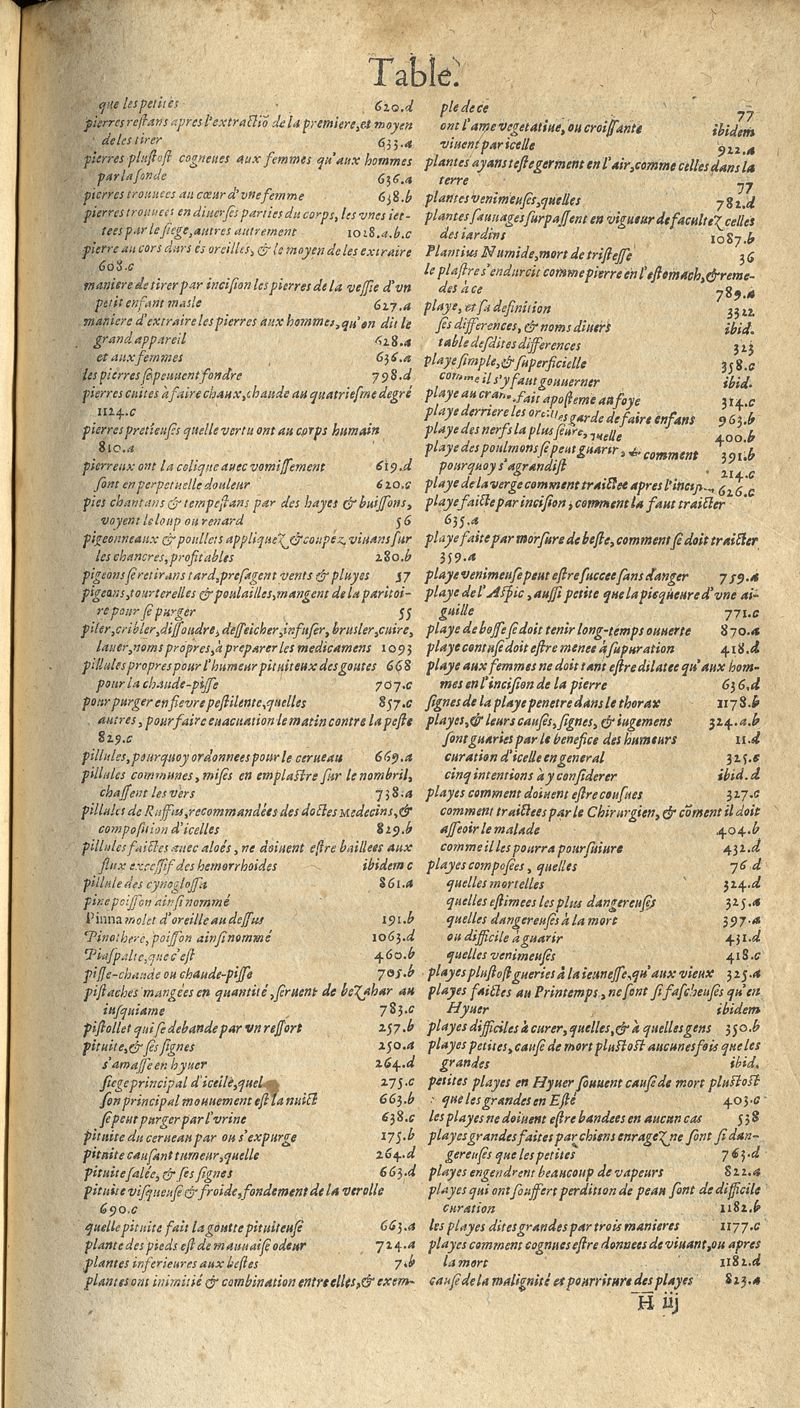 Table.
que les petites 620.d
pierres reſtans apres l'extractiõ de la premiere, et moyen
de les tirer 633.a
pierres pluſtoſt cogneues aux femmes qu'aux hommes
par la ſonde 636.a
pierres trouuees au cœur d'vne femme 638.b
pierres trouuees en diuerſes parties du corps, les vnes iet-
tees par le ſiege, autres autrement 1028.a.b.c
pierre au cors durs és oreilles, & le moyen de les extraire
608.c
maniere de tirer par inciſion les pierres de la veſſie d'vn
petit enfant maſle 627.a
maniere d'extraire les pierres aux hommes, qu'on dit le
grand appareil 628.a
et aux femmes 636.a
les pierres ſe peuuent fondre 798.d
pierres cuites à faire chaux, chaude au quatrieſme degré
1124.c
pierres pretieuſes quelle vertu ont au corps humain
810.a
pierreux ont la colique auec vomiſſement 619.d
ſont en perpetuelle douleur 620.c
pies chantans & tempeſtans par des hayes & buiſſons,
voyent le loup ou renard 56
pigeonneaux & poullets appliquez & coupéz, viuans ſur
les chancres, profitables 280.b
pigeons ſe retirans tard, preſagent vents & pluyes 57
pigeons, tourterelles & poulailles, mangent de la paritoi-
re pour ſe purger 55
piler, cribler, diſſoudre, deſſeicher, infuſer, bruſler, cuire,
lauer, noms propres, à preparer les medicamens 1093
pillules propres pour l'humeur pituiteux des goutes 668
pour la chaude-piſſe 707.c
pour purger en fievre peſtilente, quelles 857.c
autres, pour faire euacuation le matin contre la peſte
829.c
pillules, pourquoy ordonnees pour le cerueau 669.a
pillules communes, miſes en emplaſtre ſur le nombril,
chaſſent les vers 738.a
pillules de Ruffus, recommandées des doctes Medecins, &
compoſition d'icelles 829.b
pillules faictes auec aloés, ne doiuent eſtre baillees aux
flux exceſſif des hemorrhoides ibidem c
pillule des cynogloſſa 861.a
pine poiſſon ainſi nommé
Pinna molet d'oreille au deſſus 191.b
Pinothere, poiſſon ainſi nommé 1063.d
Piaſpalte, que c'eſt 460.b
piſſe-chaude ou chaude-piſſe 705.b
piſtaches mangées en quantité, ſeruent de bezahar au
iuſquiame 783.c
piſtollet qui ſe debande par vn reſſort 257.b
pituite, & ſes ſignes 250.a
s'amaſſe en hyuer 264.d
ſiege principal d'icelle, quel 275.c
ſon principal mouuement eſt la nuict 663.b
ſe peut purger par l'vrine 638.c
pituite du cerueau par ou s'expurge 175.b
pituite cauſant tumeur, quelle 264.d
pituite ſalée, & ſes ſignes 663.d
pituite viſqueuſe & froide, fondement de la verolle
690.c
quelle pituite fait la goutte pituiteuſe 663.a
plante des pieds eſt de mauuaiſe odeur 724.a
plantes inferieures aux beſtes 7.b
plantes ont inimitié & combination entre elles, & exem-
ple de ce 77
ont l'ame vegetatiue, ou croiſſante ibidem
viuent par icelle 922.a
plantes ayans teſte germent en l'air, comme celles dans la
terre 77
plantes venimeuſes, quelles 782.d
plantes ſauuages ſurpaſſent en vigueur de facultez celles
des iardins 1087.b
Plantius Numide, mort de triſteſſe 36
le plaſtre s'endurcit comme pierre en l'eſtomach, & reme-
des à ce 789.a
playe, et ſa definition 3322
ſes differences, & noms diuers ibid.
table deſdites differences 323
playe ſimple, & ſuperficielle 358.c
comme il s'y faut gouuerner ibid.
playe au crane fait apoſteme au foye 314.c
playe derriere les oreilles garde de faire enfans 963.b
playe des nerfs la plus ſeure, quelle 400.b
playe des poulmons ſe peut guarir, & comment 391.b
pourquoy s'agrandiſt 214.c
playe de la verge comment traictee apres l'inciſ. 626.c
playe faicte par inciſion, comment la faut traicter
635.a
playe faite par morſure de beſte, comment ſe doit traicter
359.a
playe venimeuſe peut eſtre ſuccee ſans danger 759.a
playe de l'Aſpic, auſſi petite que la piequeure d'vne ai-
guille 771.c
playe de boſſe ſe doit tenir long-temps ouuerte 870.a
playe contuſe doit eſtre menee à ſupuration 418.d
playe aux femmes ne doit tant eſtre dilatee qu'aux hom-
mes en l'inciſion de la pierre 636.d
ſignes de la playe penetre dans le thorax 1178.b
playes, & leurs cauſes, ſignes, & iugemens 324.a.b
ſont guaries par le benefice des humeurs 11.d
curation d'icelle en general 325.c
cinq intentions à y conſiderer ibid. d
playes comment doiuent eſtre couſues 327.c
comment traictees par le Chirurgien, & cõment il doit
aſſeoir le malade 404.b
comme il les pourra pourſuiure 432.d
playes compoſées, quelles 76 d
quelles mortelles 324.d
quelles eſtimees les plus dangereuſes 325.a
quelles dangereuſes à la mort 397.a
ou difficile à guarir 431.d
quelles venimeuſes 418.c
playes pluſtoſt gueries à la ieuneſſe, qu'aux vieux 325.a
playes faictes au Printemps, ne ſont ſi faſcheuſes qu'en
Hyuer ibidem
playes difficiles à curer, quelles, & à quelles gens 350.b
playes petites, cauſe de mort pluſtoſt aucunes fois que les
grandes ibid.
petites playes en Hyuer ſouuent cauſe de mort pluſtoſt
que les grandes en Eſté 403.c
les playes ne doiuent eſtre bandees en aucun cas 538
playes grandes faites par chiens enragez ne ſont ſi dan-
gereuſes que les petites 763.d
playes engendrent beaucoup de vapeurs 822.a
playes qui ont ſouffert perdition de peau ſont de difficile
curation 1182.b
les playes dites grandes par trois manieres 1177.c
playes comment cognues eſtre donnees de viuant, ou apres
la mort 1182.d
cauſe de la malignité et pourriture des playes 823.a
H iij